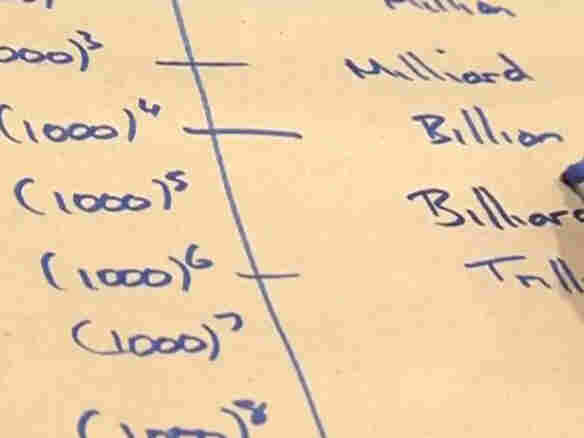 Million
000)³ Milliard
(1000)⁴ Billion
(1000)⁵ Billiar
(1000)⁶ Trill
(1000)⁷
(1000)⁸